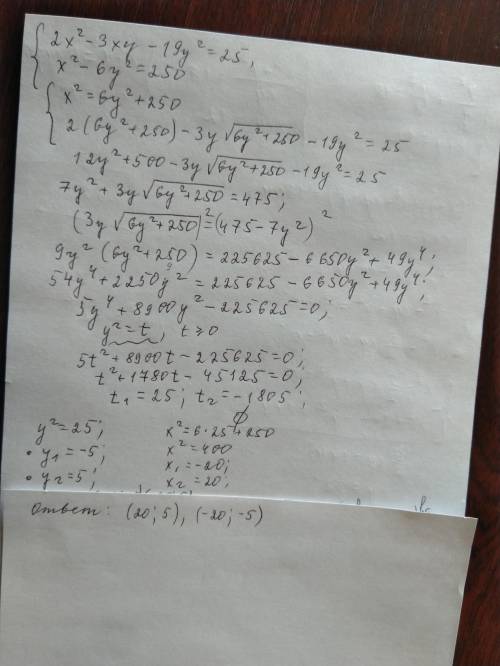 2x² - 3xy - 19y² = 25,
x² - 6y² = 250
x² = 6y² + 250
2(6y² + 250) - 3y √(6y² + 250) - 19y² = 25
12y² + 500 - 3y √(6y² + 250) - 19y² = 25
7y² + 3y √(6y² + 250) = 475;
(3y √(6y² + 250))² = (475 - 7y²)²
9y² (6y² + 250) = 225625 - 6650y² + 49y⁴;
54y⁴ + 2250y² = 225625 - 6650y² + 49y⁴;
5y⁴ + 8900y² - 225625 = 0;
y² = t, t ≥ 0
5t² + 8900t - 225625 = 0;
t² + 1780t - 45125 = 0;
t₁ = 25; t₂ = -1805;
∅
y² = 25; x² = 6·25 + 250
x² = 400
• y₁ = -5; x₁ = -20;
• y₂ = 5; x₂ = 20;
Ответ: (20; 5), (-20; -5)